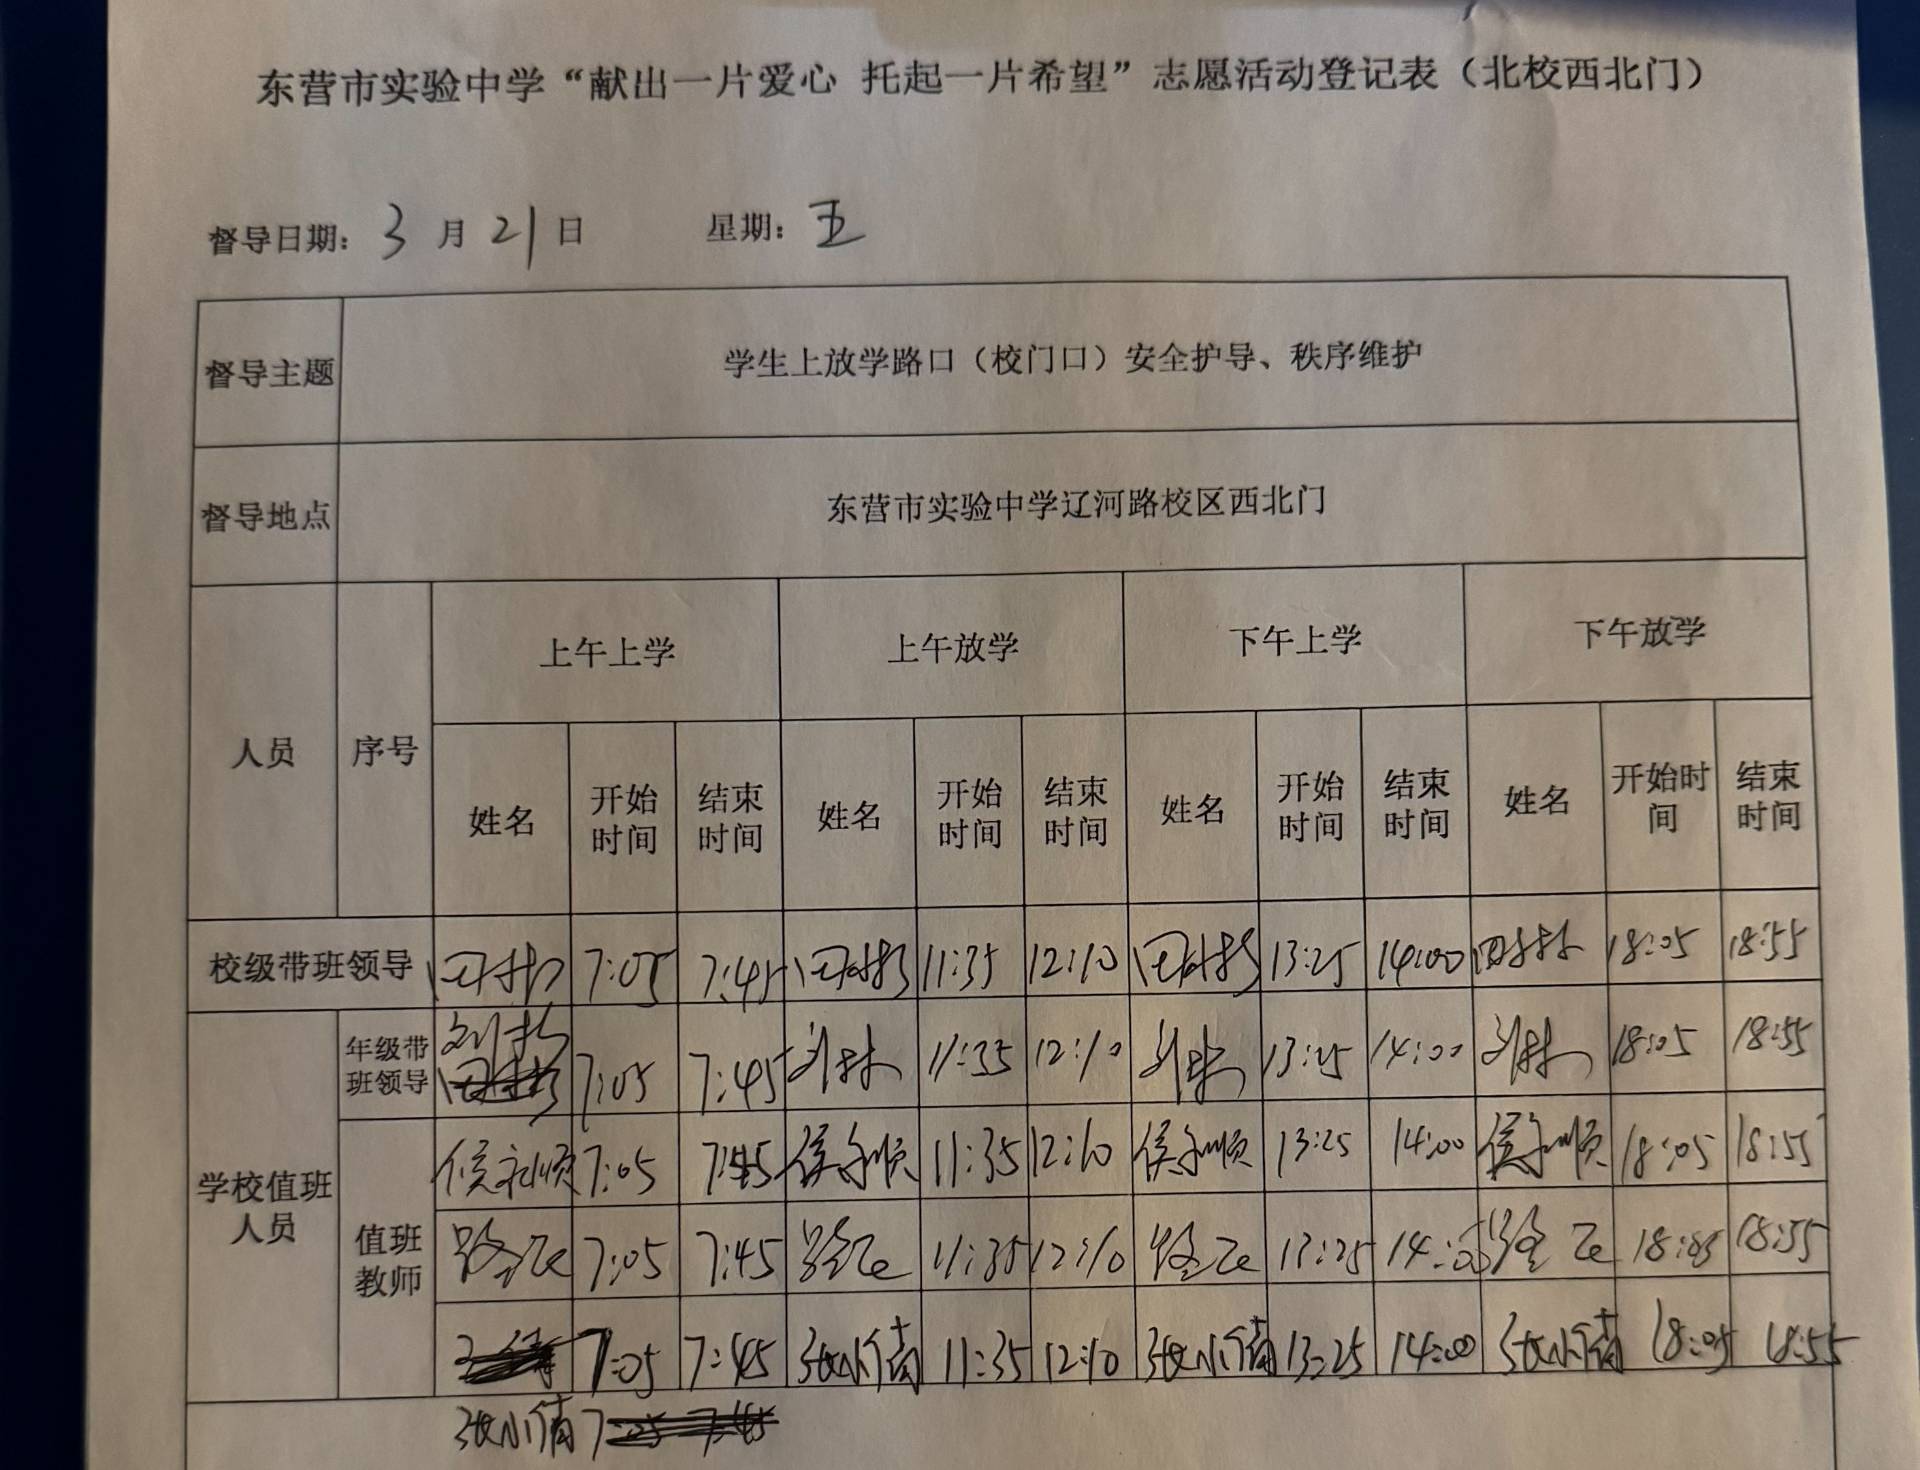 东营市实验中学“献出一片爱心 托起一片希望”志愿活动登记表（北校西北门）
督导日期：3月21日 星期：五
督导主题 学生上放学路口（校门口）安全护导、秩序维护
督导地点 东营市实验中学辽河路校区西北门
人员 序号 上午上学 上午放学 下午上学 下午放学
姓名 开始时间 结束时间 姓名 开始时间 结束时间 姓名 开始时间 结束时间 姓名 开始时间 结束时间
校级带班领导 7:05 7:45 11:35 12:10 13:25 14:00 18:05 18:55
学校值班人员
年级带班领导 刘林 7:05 7:45 刘林 11:35 12:10 刘林 13:25 14:00 刘林 18:05 18:55
值班教师
侯永顺 7:05 7:45 侯永顺 11:35 12:10 侯永顺 13:25 14:00 侯永顺 18:05 18:55
7:05 7:45 11:35 12:10 13:25 14:00 18:05 18:55
7:05 7:45 张小倩 11:35 12:10 张小倩 13:25 14:00 张小倩 18:05 18:55
张小倩 7:05 7:45